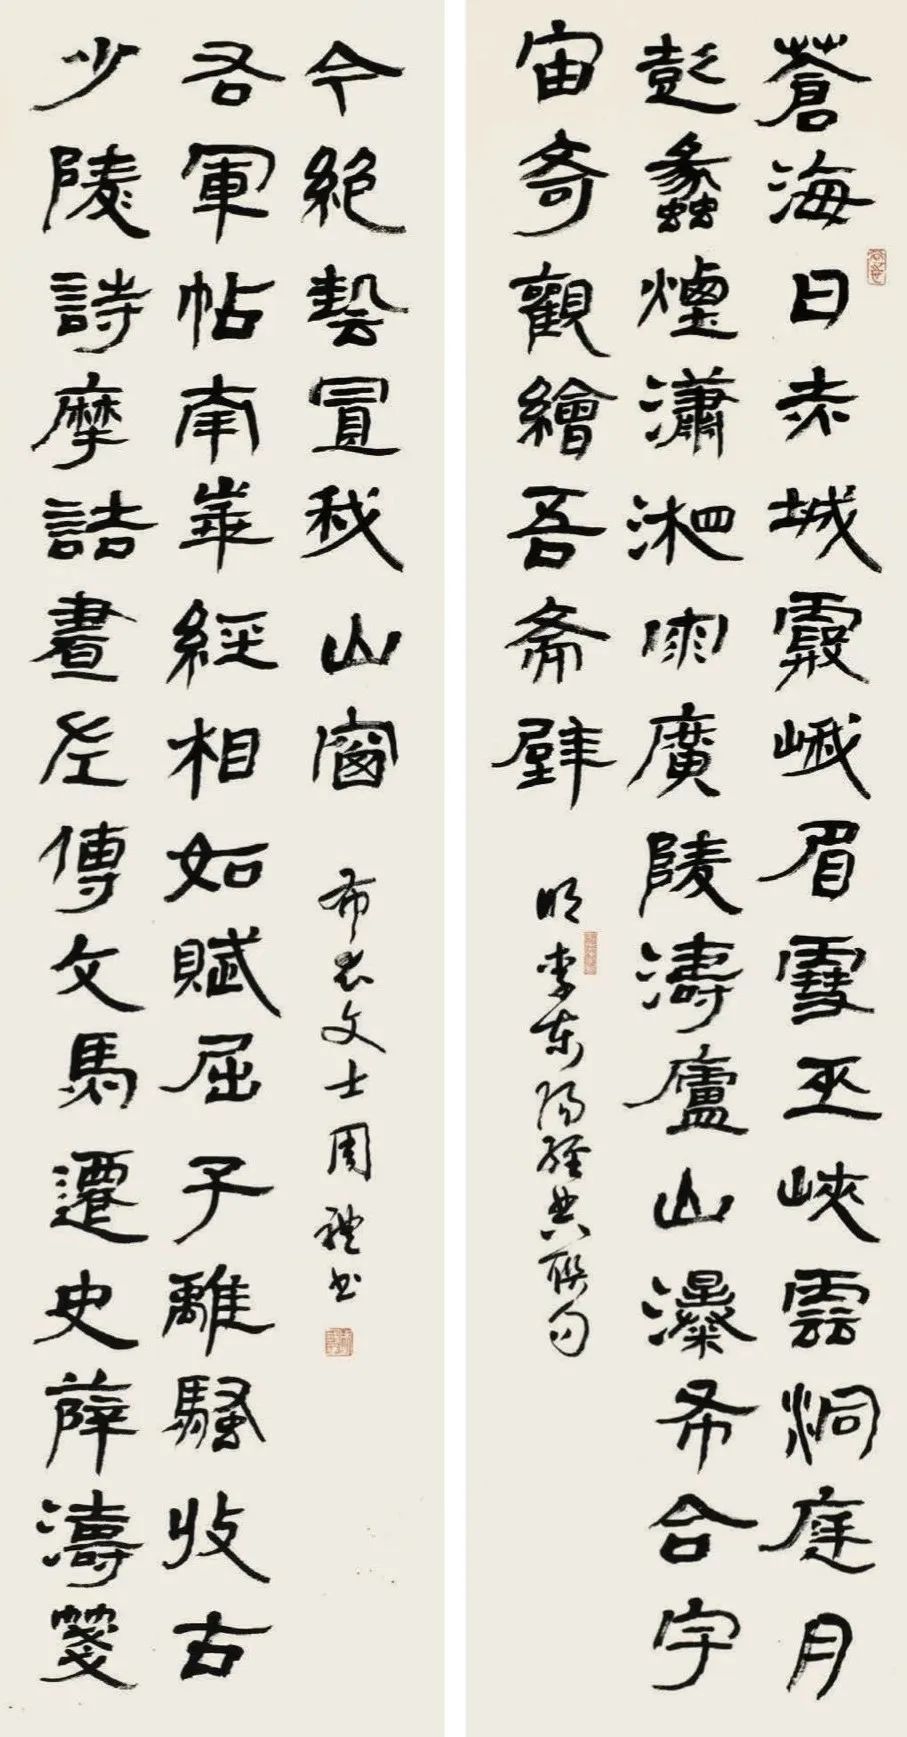 蒼海日赤城霞峨眉雪巫峽雲洞庭月
彭蠡煙瀟湘雨廣陵濤廬山瀑希合宇
宙奇觀繪吾齋壁
明李東陽經典聯句
少陵詩摩詰畫左傳文馬遷史薛濤箋
右軍帖南華經相如賦屈子離騷收古
今絕藝置我山窗
布衣文士周禮書